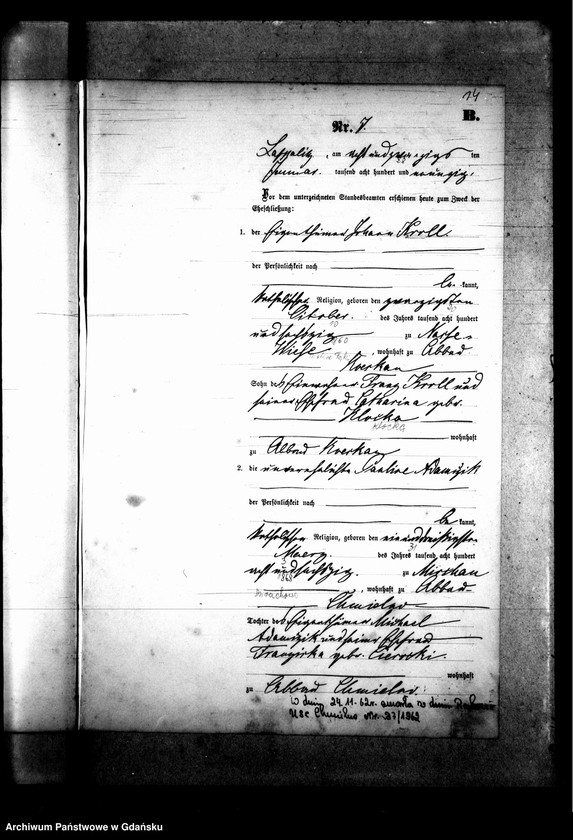 14
B.
Nr. 7.
Lappalitz, am acht und zwanzigsten
Januar tausend acht hundert und neunzig.
Vor dem unterzeichneten Standesbeamten erschienen heute zum Zweck der
Eheschließung:
1. der Eigenthümer Johann Kroll
der Persönlichkeit nach
be kannt,
katholischer Religion, geboren den zwanzigsten
October des Jahres tausend acht hundert
und sechszig zu
1860
Wiese, wohnhaft zu Abbau
Sohn des Einwohners Franz Kroll und
seiner Ehefrau Catharina geb.
Klocka
Klocka
wohnhaft
zu Abbau
2. die unverehelichte Pauline Adamczik
der Persönlichkeit nach
be kannt,
katholischer Religion, geboren den einunddreißigsten
31
Maerz des Jahres tausend acht hundert
acht und sechszig zu Mirchau
1868
Mirachowo, wohnhaft zu Abbau
Chmielno
Tochter des Eigenthümers Michael
Adamczik und seiner Ehefrau
Franziska geb.
wohnhaft
zu Abbau Chmielno
W dniu 24.11.62r. zmarła w
USC Chmielno Nr. 27/1962
Archiwum Państwowe w Gdańsku